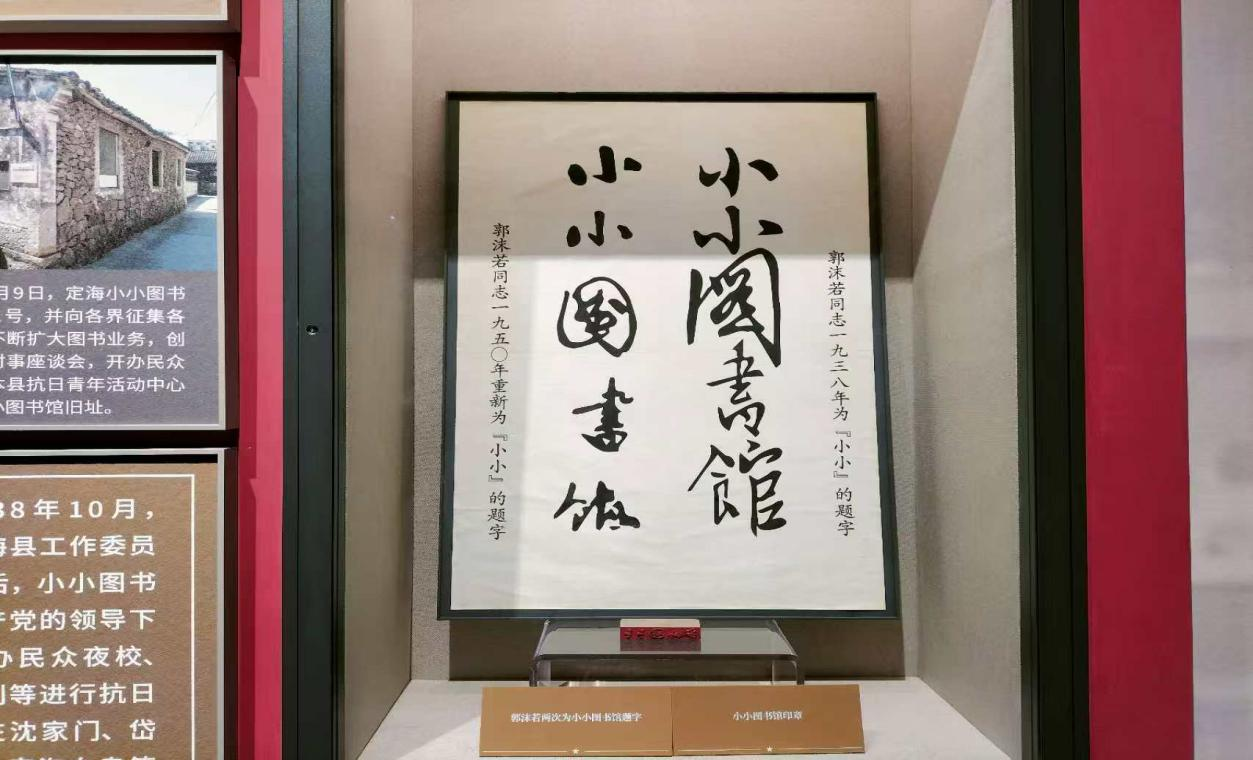 月9日，定海小小图书
号，并向各界征集各
不断扩大图书业务，创
时事座谈会，开办民众
本县抗日青年活动中心
小图书馆旧址。
38年10月，
海县工作委员
后，小小图书
产党的领导下
办民众夜校、
刊等进行抗日
在沈家门、岱
郭沫若同志一九三八年为『小小』的题字
小小圖書館
小小圖書館
郭沫若同志一九五〇年重新为『小小』的题字
郭沫若两次为小小图书馆题字
小小图书馆印章